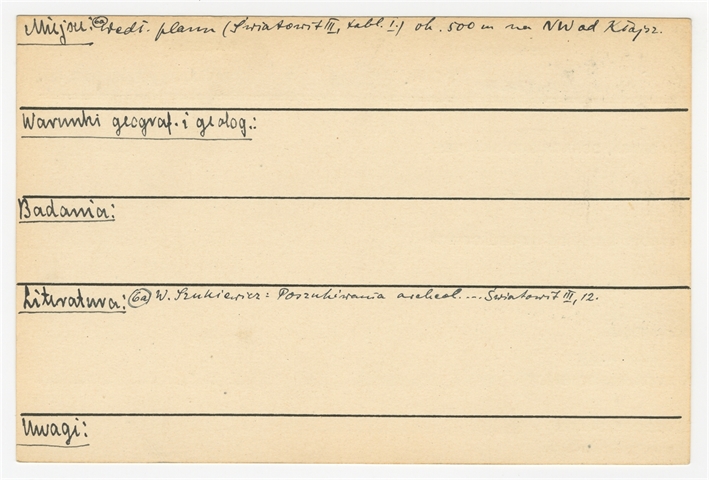 Miejsc: (6a) Wedł. planu (Światowit III, tabl. I.) ok. 500 m na NW od Kłajsz.
Warunki geograf. i geolog.:
Badania:
Literatura: (6a) W. Szukiewicz: Poszukiwania archeol. ... Światowit III, 12.
Uwagi: